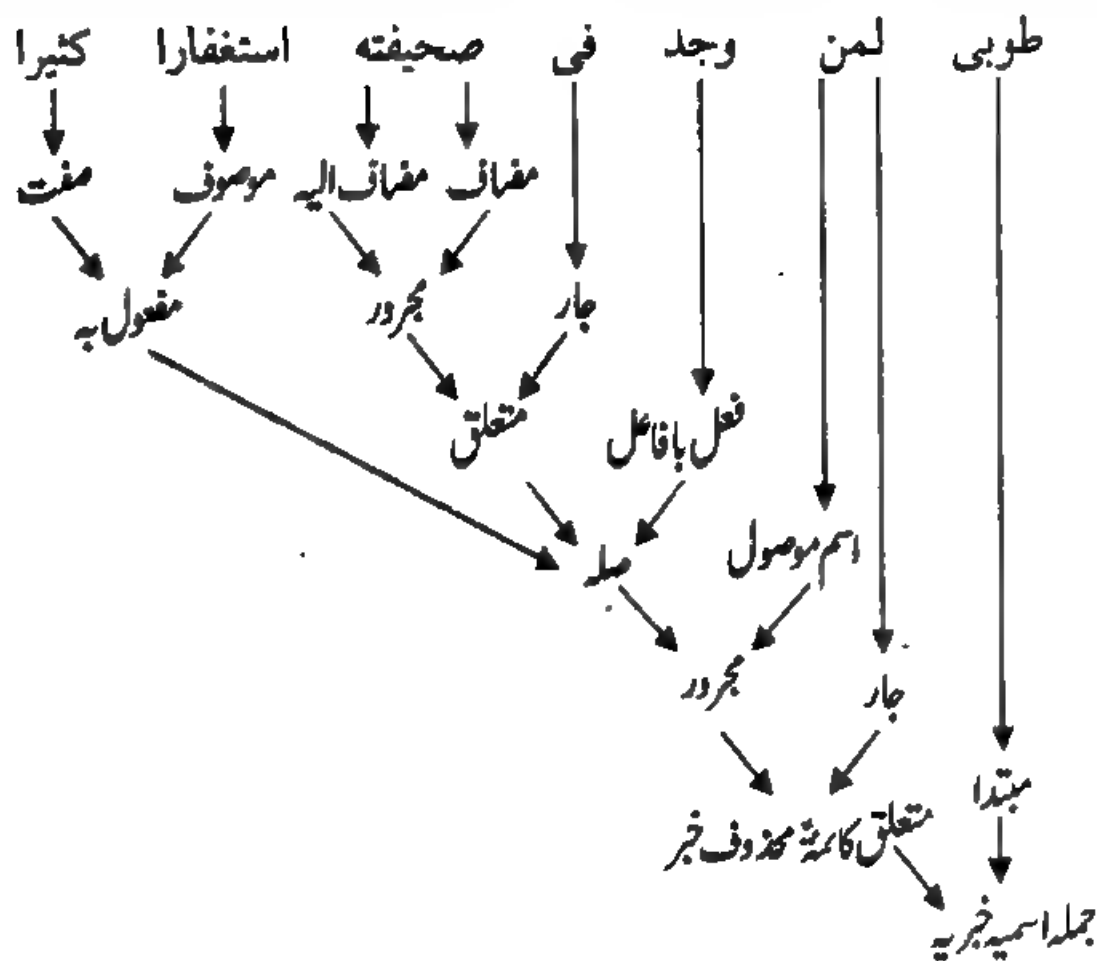 طوبى لمن وجد فى صحيفته استغفارا كثيرا
مضاف مضاف الیہ موصوف صفت
جار مجرور مفعول بہ
فعل بافاعل متعلق
اسم موصول صلہ
جار مجرور
مبتدا
متعلق کائنۃ محذوف خبر
جملہ اسمیہ خبریہ